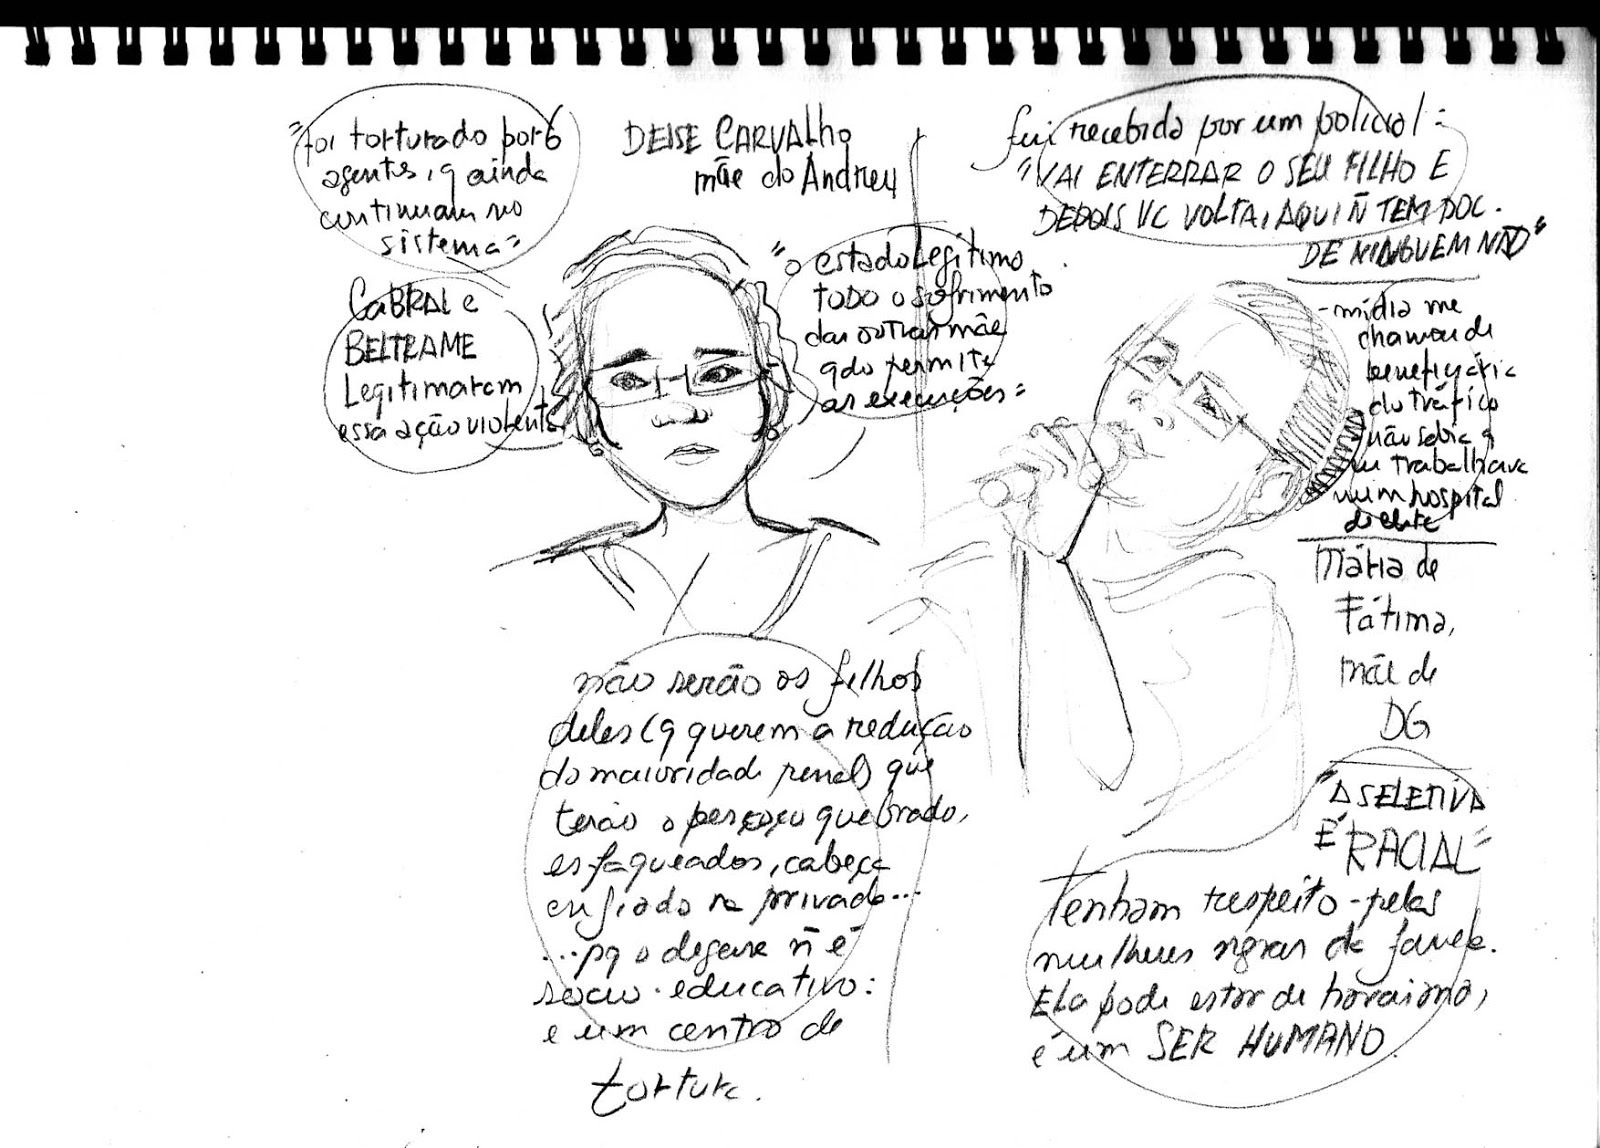 "foi torturado por 6
agentes, q ainda
continuam no
sistema"
CABRAL e
BELTRAME
Legitimaram
essa ação violenta
DEISE CARVALHO
mãe do Andreu
"o estado legítimo
TODO o sofrimento
das outras mãe
qdo permite
as execuções"
não serão os filhos
deles (q querem a redução
da maioridade penal) que
terão o pescoço quebrado,
esfaqueados, cabeça
enfiada na privada...
...pq o degase ñ é
socio-educativo:
e um centro de
tortura.
fui recebida por um policial:
"VAI ENTERRAR O SEU FILHO E
DEPOIS VC VOLTA, AQUI Ñ TEM DOC.
DE NINGUEM NÃO"
- mídia me
chamou de
beneficiária
do tráfico
não sabia q
eu trabalhava
num hospital
Mária de
Fátima,
mãe de
DG
"A SELETIVA
É RACIAL"
Tenham respeito pelas
mulheres negras de favela.
Ela pode estar de
é um SER HUMANO.